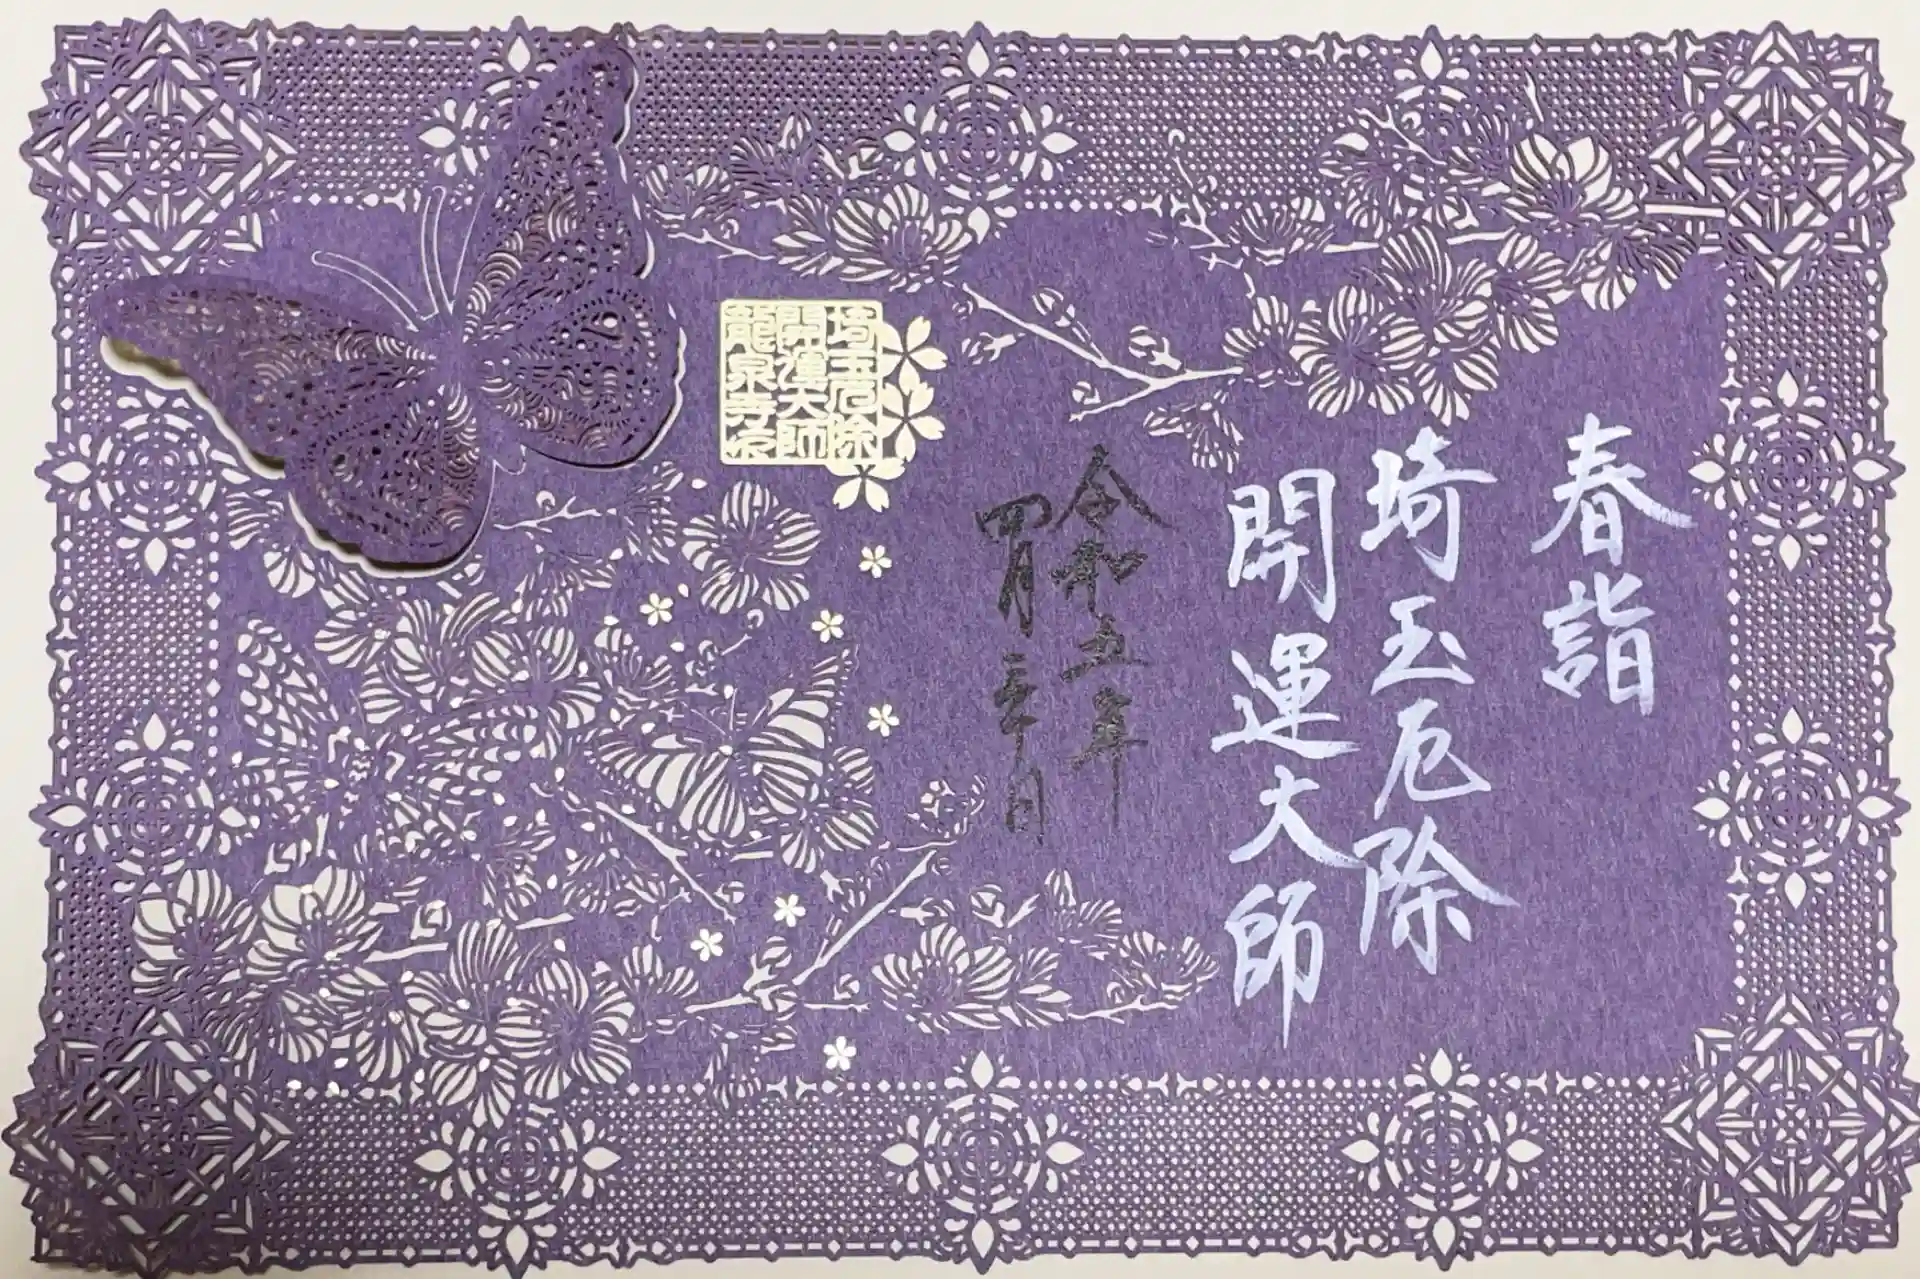 春詣
埼玉厄除
開運大師
令和五年
四月 日
埼玉厄除
開運大師
龍泉寺印